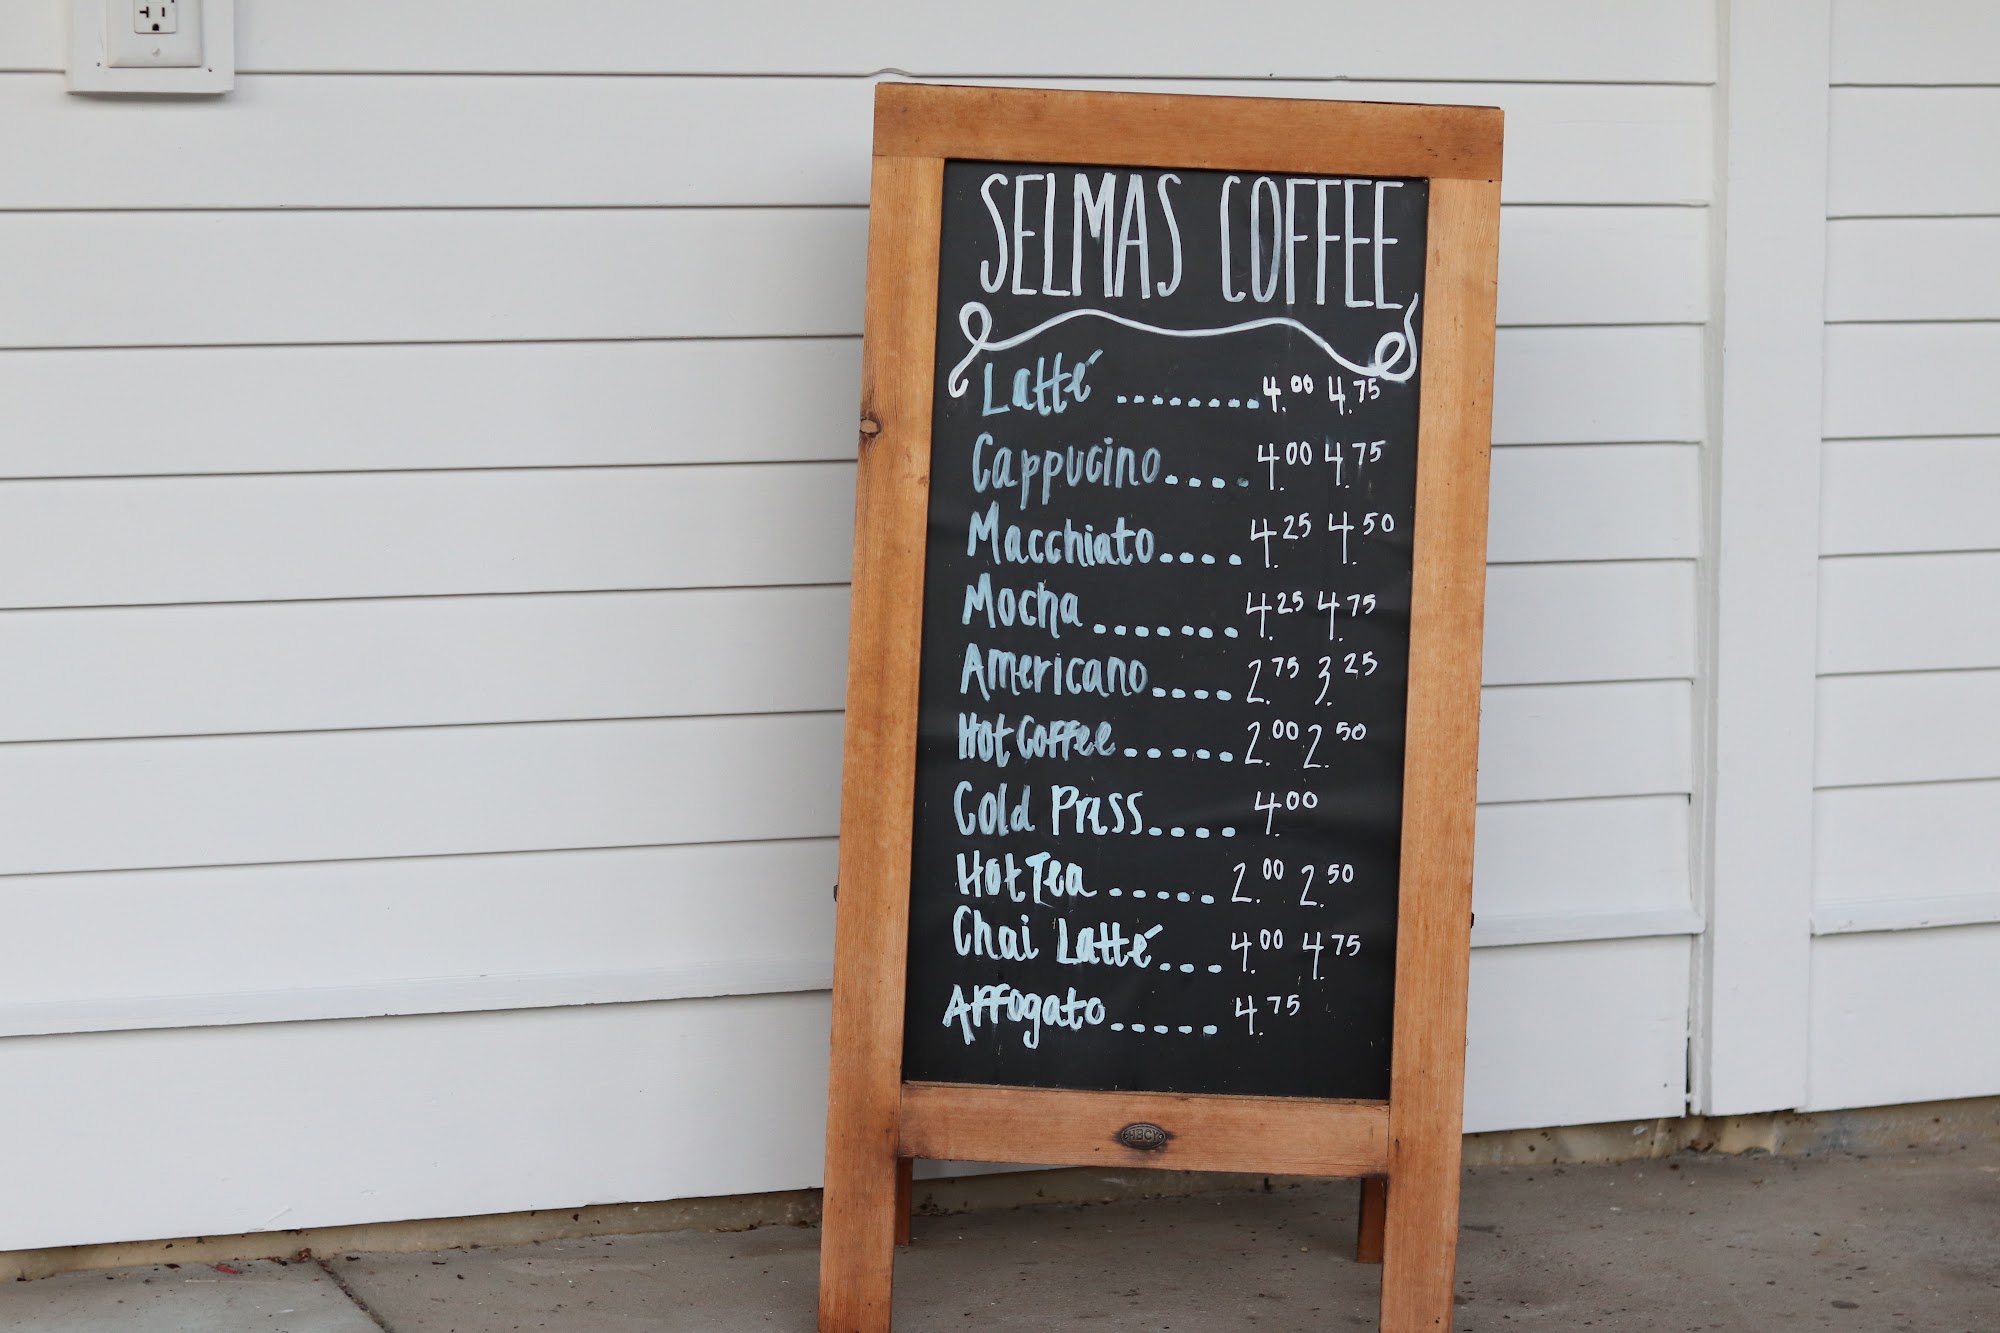 SELMAS COFFEE
Latté ........ 4.00 4.75
Cappucino.... 4.00 4.75
Macchiato.... 4.25 4.50
Mocha ....... 4.25 4.75
Americano.... 2.75 3.25
Hot Coffee ..... 2.00 2.50
Cold Press.... 4.00
Hot Tea ...... 2.00 2.50
Chai Latté... 4.00 4.75
Affogato..... 4.75
HBCY